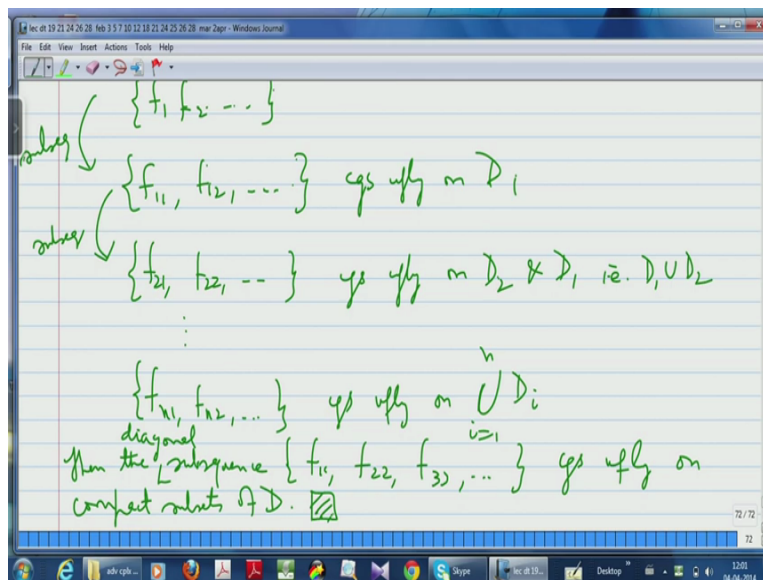 lec dt 19 21 24 26 28 feb 3 5 7 10 12 18 21 24 25 26 28 mar 2apr - Windows Journal
File Edit View Insert Actions Tools Help
{f₁ f₂ ...}
subseq
{f₁₁, f₁₂, ...} cgs ufly on D₁
subseq
{f₂₁, f₂₂, ...} cgs ufly on D₂ & D₁ i.e. D₁ ∪ D₂
⋮
{fₙ₁, fₙ₂, ...} cgs ufly on ⋃ᵢ₌₁ⁿ Dᵢ
diagonal
Then the subsequence {f₁₁, f₂₂, f₃₃, ...} cgs ufly on
compact subsets of D.
72 / 72
72
adv cplx ...
Skype
lec dt 19...
Desktop
12:01
04-04-2014